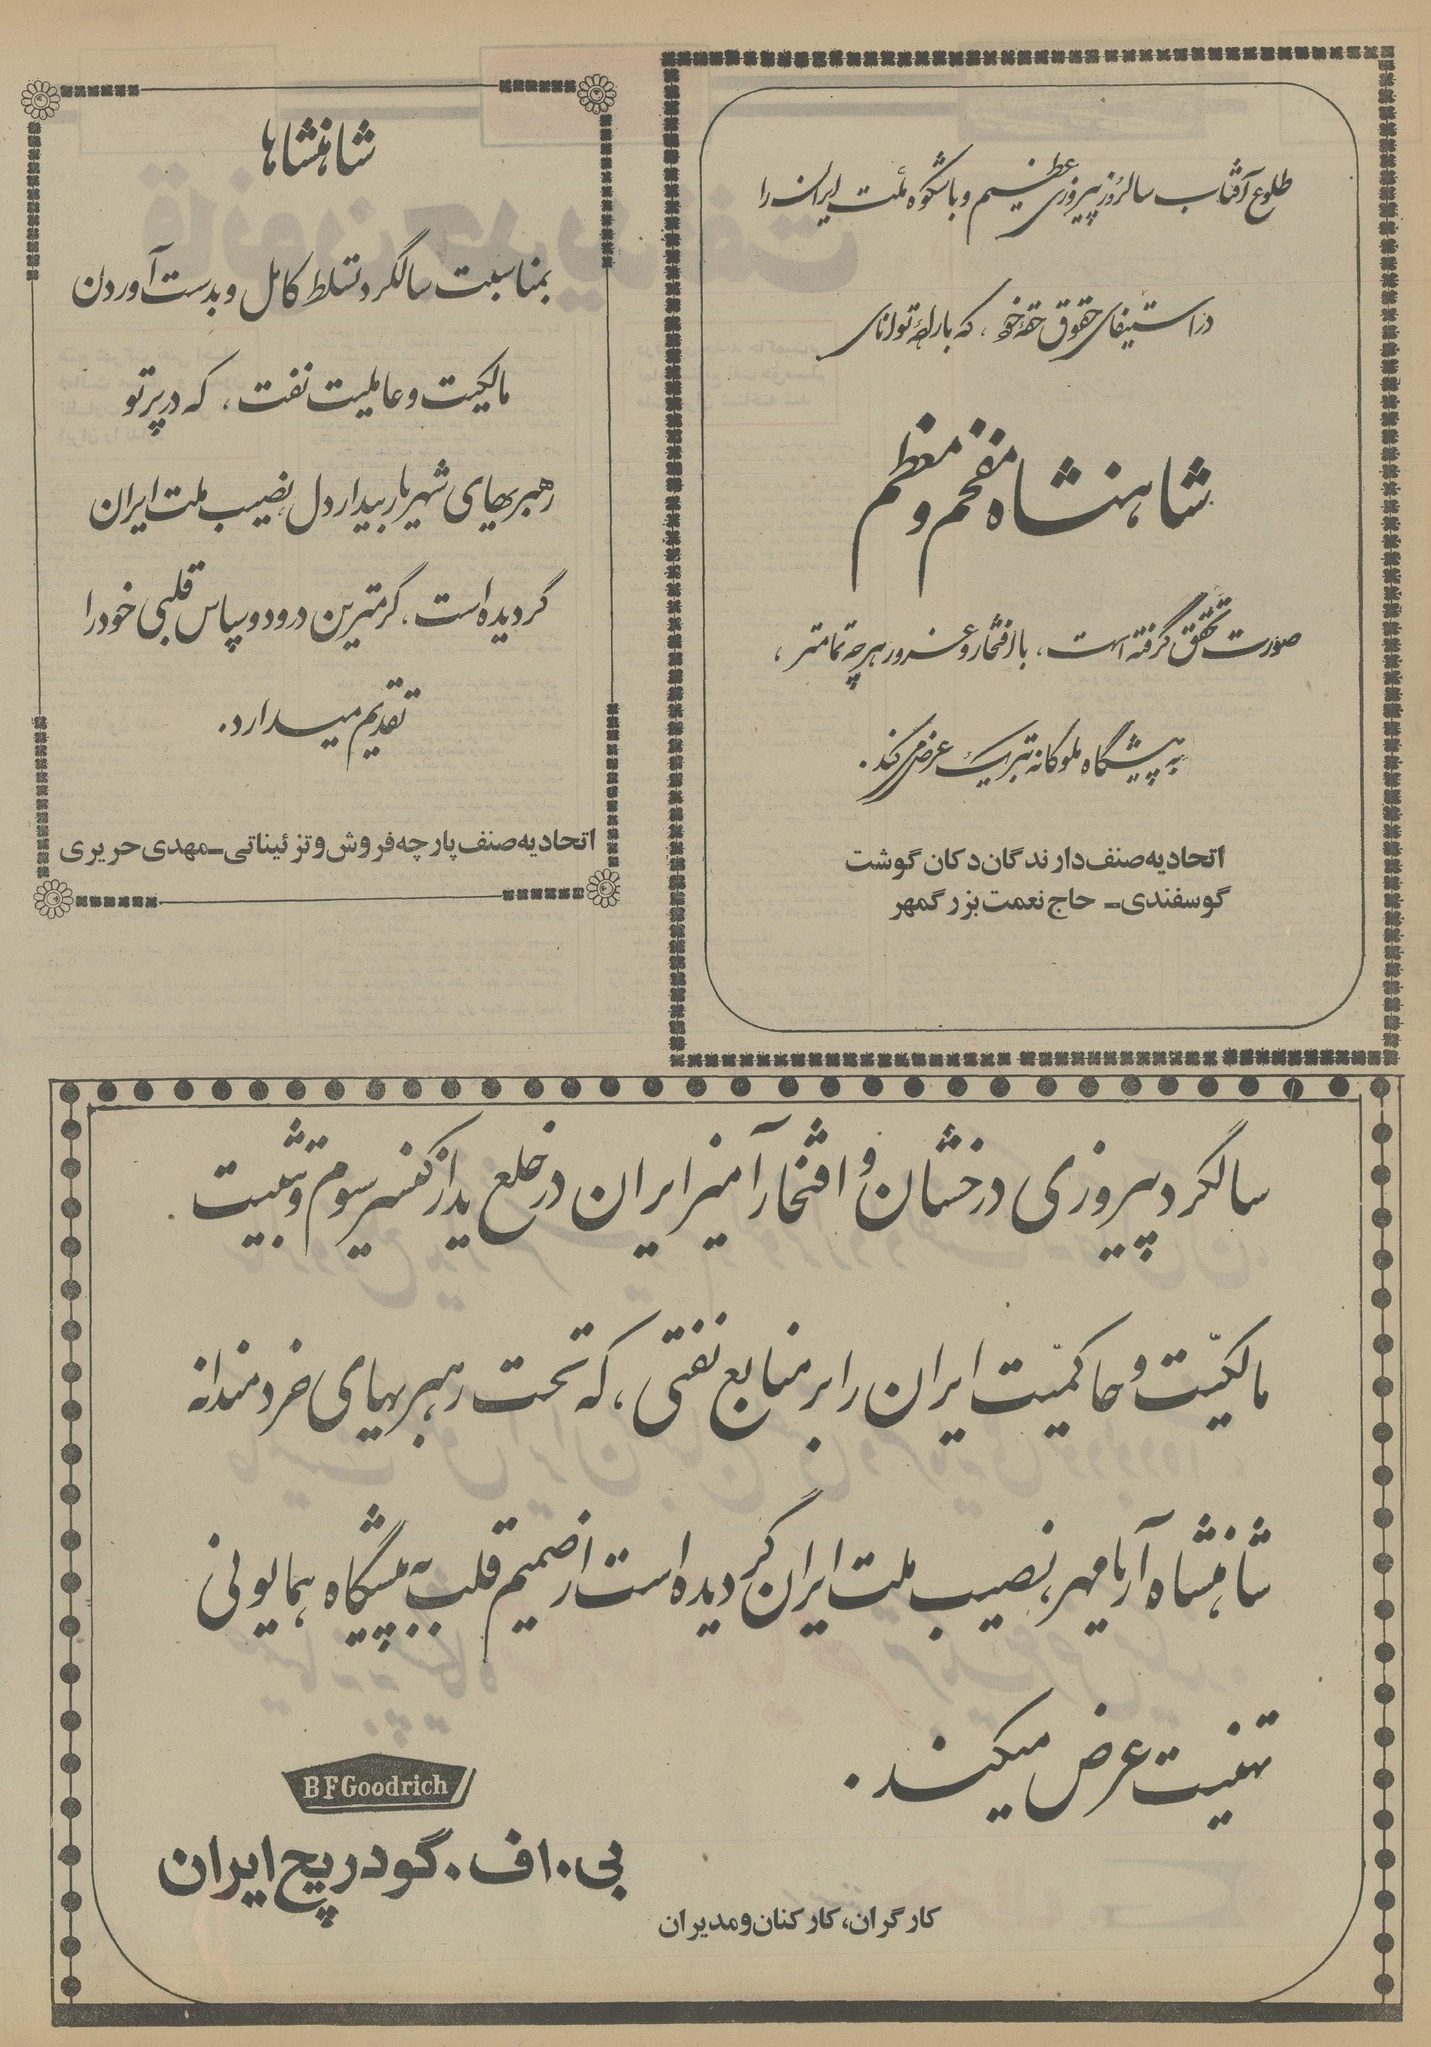 طلوع آفتاب سالروز پیروزی عظیم و باشکوه ملت ایران را
در استیفای حقوق حقه خود، که با اراده توانای
شاهنشاه مفخم و معظم
صورت تحقق گرفته است، با افتخار و غرور هر چه تمامتر،
به پیشگاه ملوکانه تبریک عرض می‌کند.
اتحادیه صنف دارندگان دکان گوشت
گوسفندی ـ حاج نعمت بزرگمهر
شاهنشاها
بمناسبت سالگرد تسلط کامل و بدست آوردن
مالکیت و عاملیت نفت، که در پرتو
رهبریهای شهریار بیدار دل نصیب ملت ایران
گردیده است، گرمترین درود و سپاس قلبی خود را
تقدیم میدارد.
اتحادیه صنف پارچه فروش و تزئیناتی ـ مهدی حریری
سالگرد پیروزی درخشان و افتخار آمیز ایران در خلع ید از کنسرسیوم و تثبیت
مالکیّت و حاکمیّت ایران را بر منابع نفتی، که تحت رهبریهای خردمندانه
شاهنشاه آریامهر نصیب ملت ایران گردیده است از صمیم قلب به پیشگاه همایونی
تهنیت عرض میکند.
BFGoodrich
بی.اف.گودریچ ایران
کارگران، کارکنان و مدیران